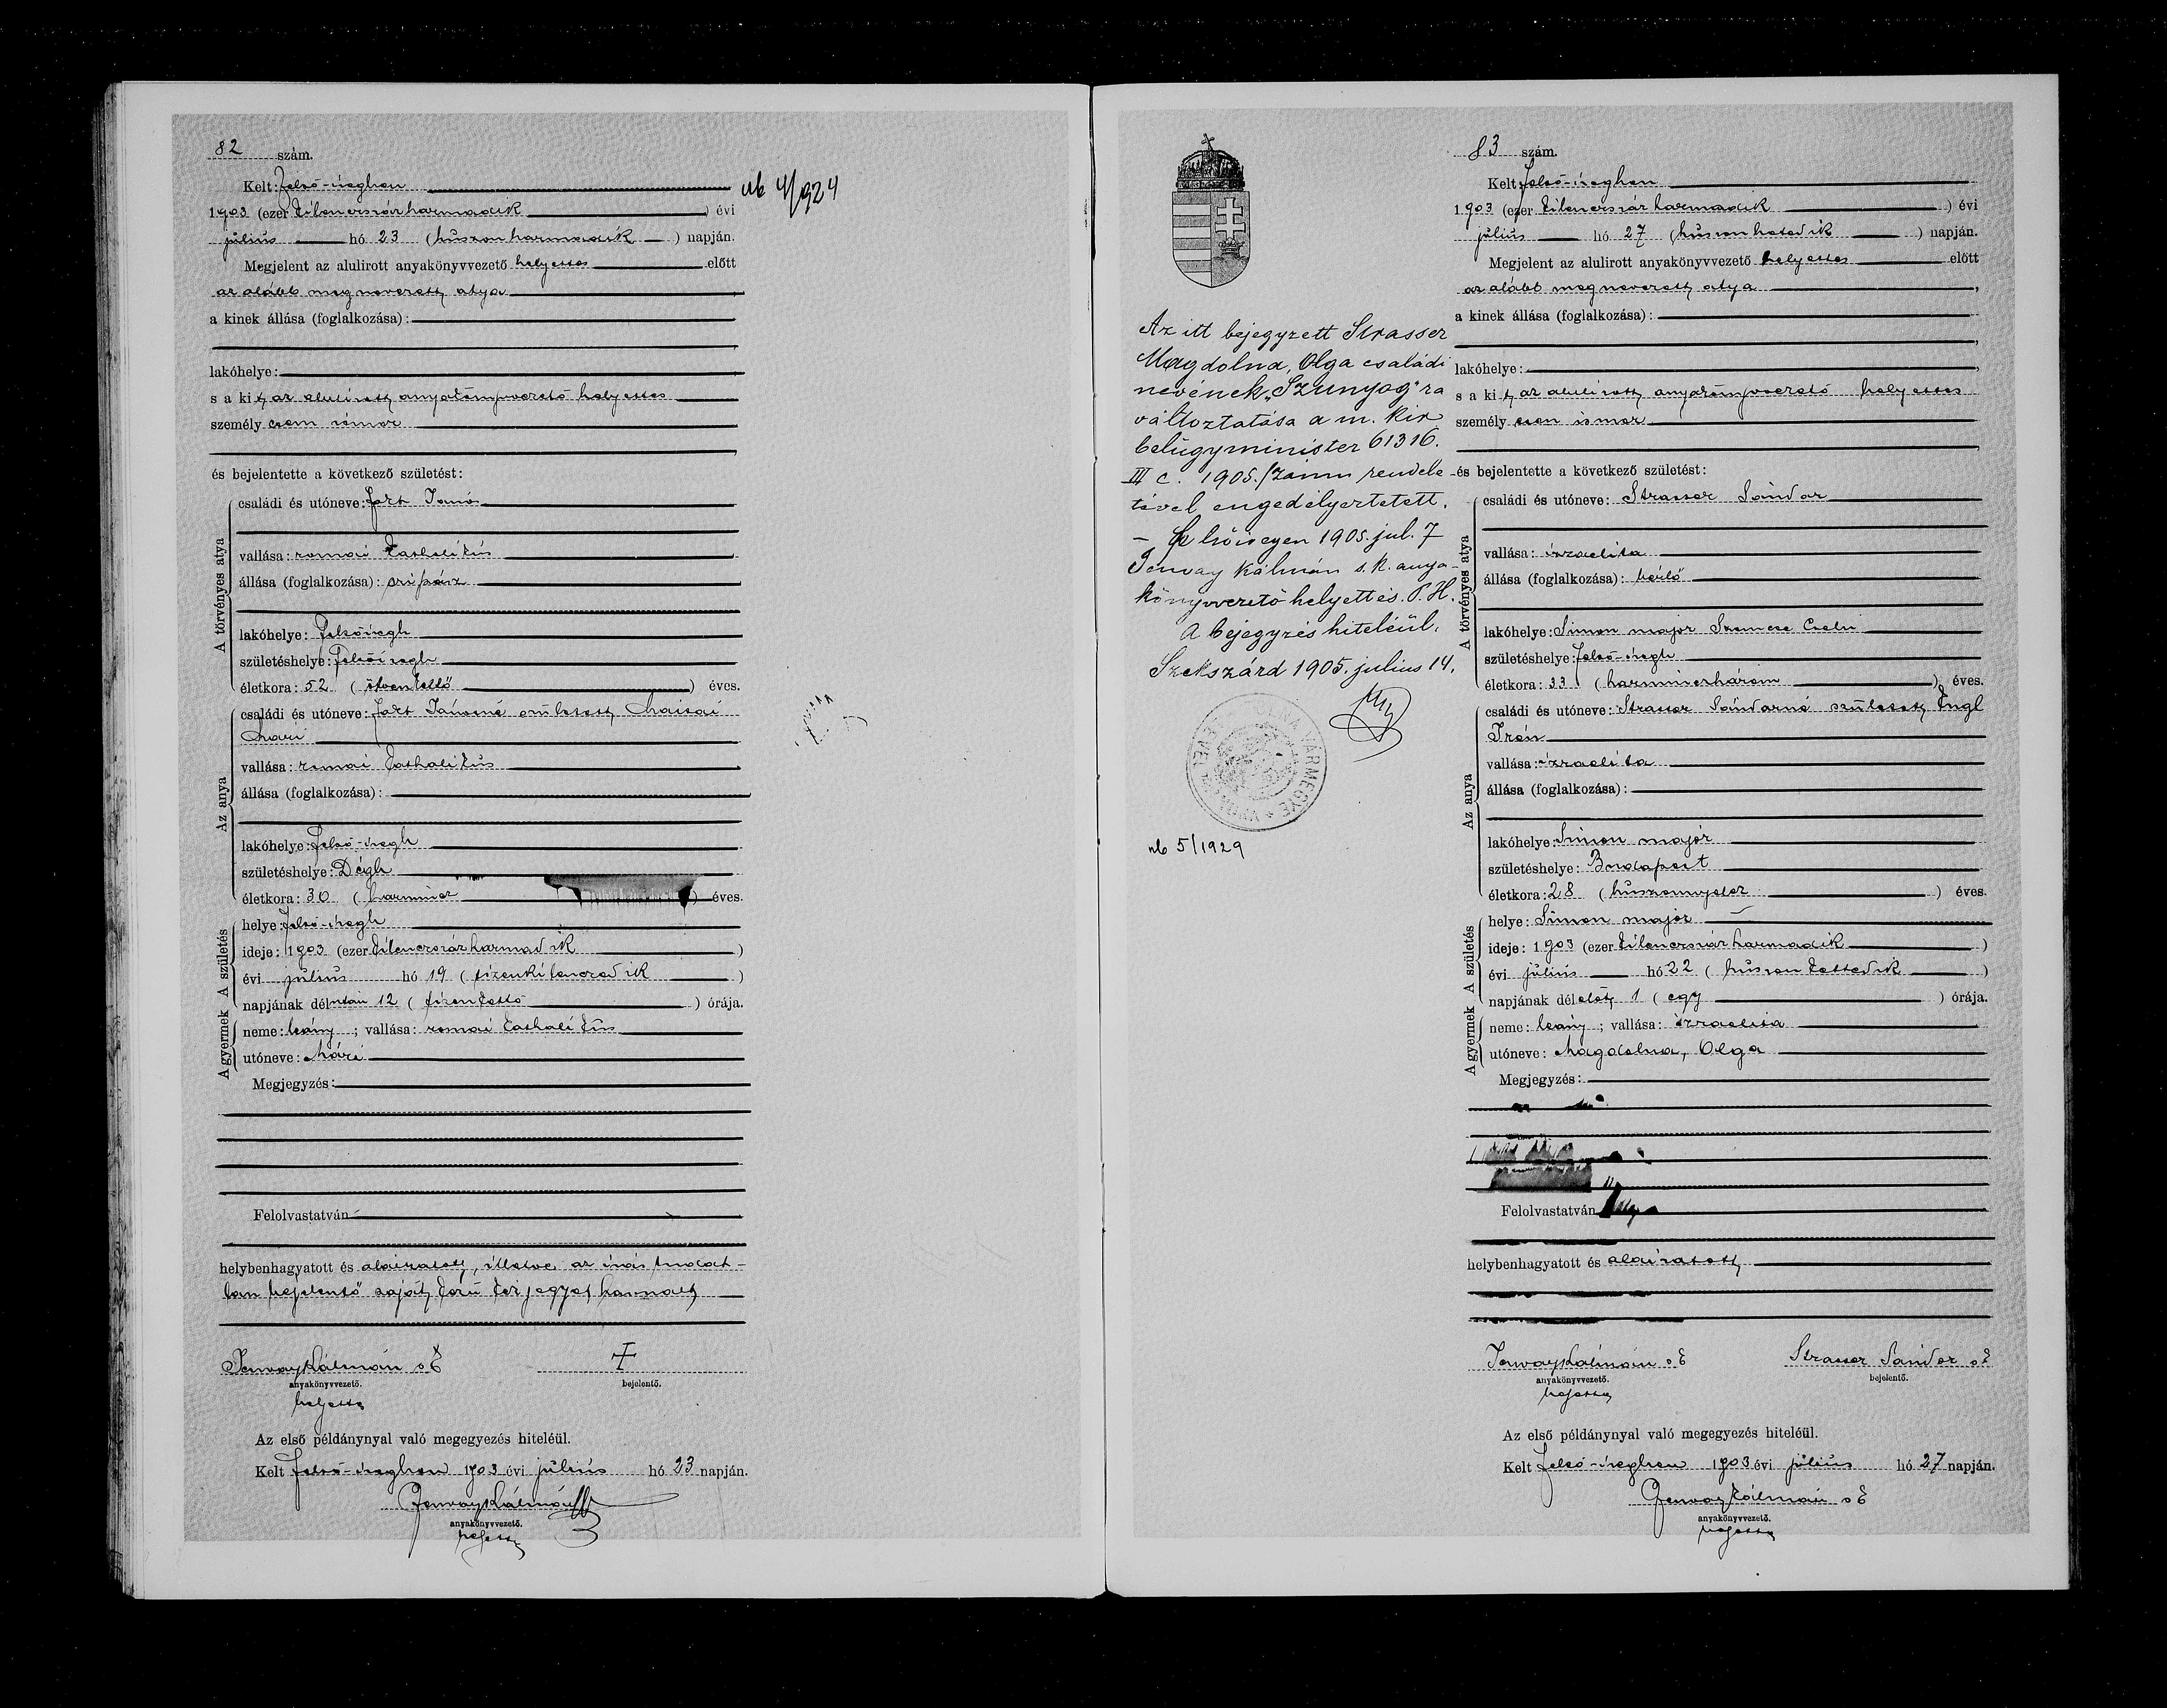 82 szám.
Kelt: Felső-ireghen
1903 (ezer kilencszázharmadik) évi
július hó 23 (huszonharmadik) napján.
Megjelent az alulirott anyakönyvvezető helyettes előtt
az alább megnevezett atya,
a kinek állása (foglalkozása):
lakóhelye:
s a kit az alulírott anyakönyvvezető helyettes
személyesen ismer
és bejelentette a következő születést:
A törvényes atya
családi és utóneve: János
vallása: romai katholikus
állása (foglalkozása):
lakóhelye: Felsőiregh
születéshelye: Felsőiregh
életkora: 52 (ötvenkettő) éves.
Az anya
családi és utóneve: Jánosné született
Mári
vallása: romai katholikus
állása (foglalkozása):
lakóhelye: Felső-iregh
születéshelye: Dégh
életkora: 30 (harmincz) éves.
A gyermek A születés
helye: Felső-iregh
ideje: 1903 (ezer kilencszázharmadik)
évi július hó 19 (tizenkilencedik)
napjának délután 12 (tizenkettő) órája.
neme: leány; vallása: romai katholikus
utóneve: Mári
Megjegyzés:
Felolvastatván
helybenhagyatott és aláiratott, illetve az irás tudat-
lan bejelentő saját kezü kézjegyet használt
Kálmán s k
anyakönyvvezető.
helyettes
bejelentő.
Az első példánynyal való megegyezés hiteléül.
Kelt Felső-ireghen 1903 évi július hó 23 napján.
Kálmán
anyakönyvvezető.
helyettes
ub 4/924
83 szám.
Kelt: Felső-ireghen
1903 (ezer kilencszázharmadik) évi
július hó 27 (huszonhetedik) napján.
Megjelent az alulirott anyakönyvvezető helyettes előtt
az alább megnevezett atya,
a kinek állása (foglalkozása):
lakóhelye:
s a kit az alulírott anyakönyvvezető helyettes
személyesen ismer
és bejelentette a következő születést:
A törvényes atya
családi és utóneve: Strasser Sándor
vallása: izraelita
állása (foglalkozása): bérlő
lakóhelye: Simon major
születéshelye: Felső-iregh
életkora: 33 (harminczhárom) éves.
Az anya
családi és utóneve: Strasser Sándorné született Engl
Irén
vallása: izraelita
állása (foglalkozása):
lakóhelye: Simon major
születéshelye: Budapest
életkora: 28 (huszonnyolcz) éves.
A gyermek A születés
helye: Simon major
ideje: 1903 (ezer kilencszázharmadik)
évi július hó 22 (huszonkettedik)
napjának délelőtt 1 (egy) órája.
neme: leány; vallása: izraelita
utóneve: Magdolna, Olga
Megjegyzés:
Felolvastatván
helybenhagyatott és aláiratott
Kálmán s k
anyakönyvvezető.
helyettes
Strasser Sándor s k
bejelentő.
Az első példánynyal való megegyezés hiteléül.
Kelt Felső-ireghen 1903 évi július hó 27 napján.
Kálmán s k
anyakönyvvezető.
helyettes
Az itt bejegyzett Strasser
Magdolna, Olga családi
nevének „Szunyog"ra
változtatása a m. kir
belügyminister 61316.
III c. 1905. számu rendele-
tével engedélyeztetett.
- Felsőiregen 1905. jul. 7
Kálmán s. k. anya-
könyvvezető helyettes. P. H.
A bejegyzés hiteléül.
Szekszárd 1905. julius 14.
TOLNA VÁRMEGYE LEVÉL
ub 5/1929